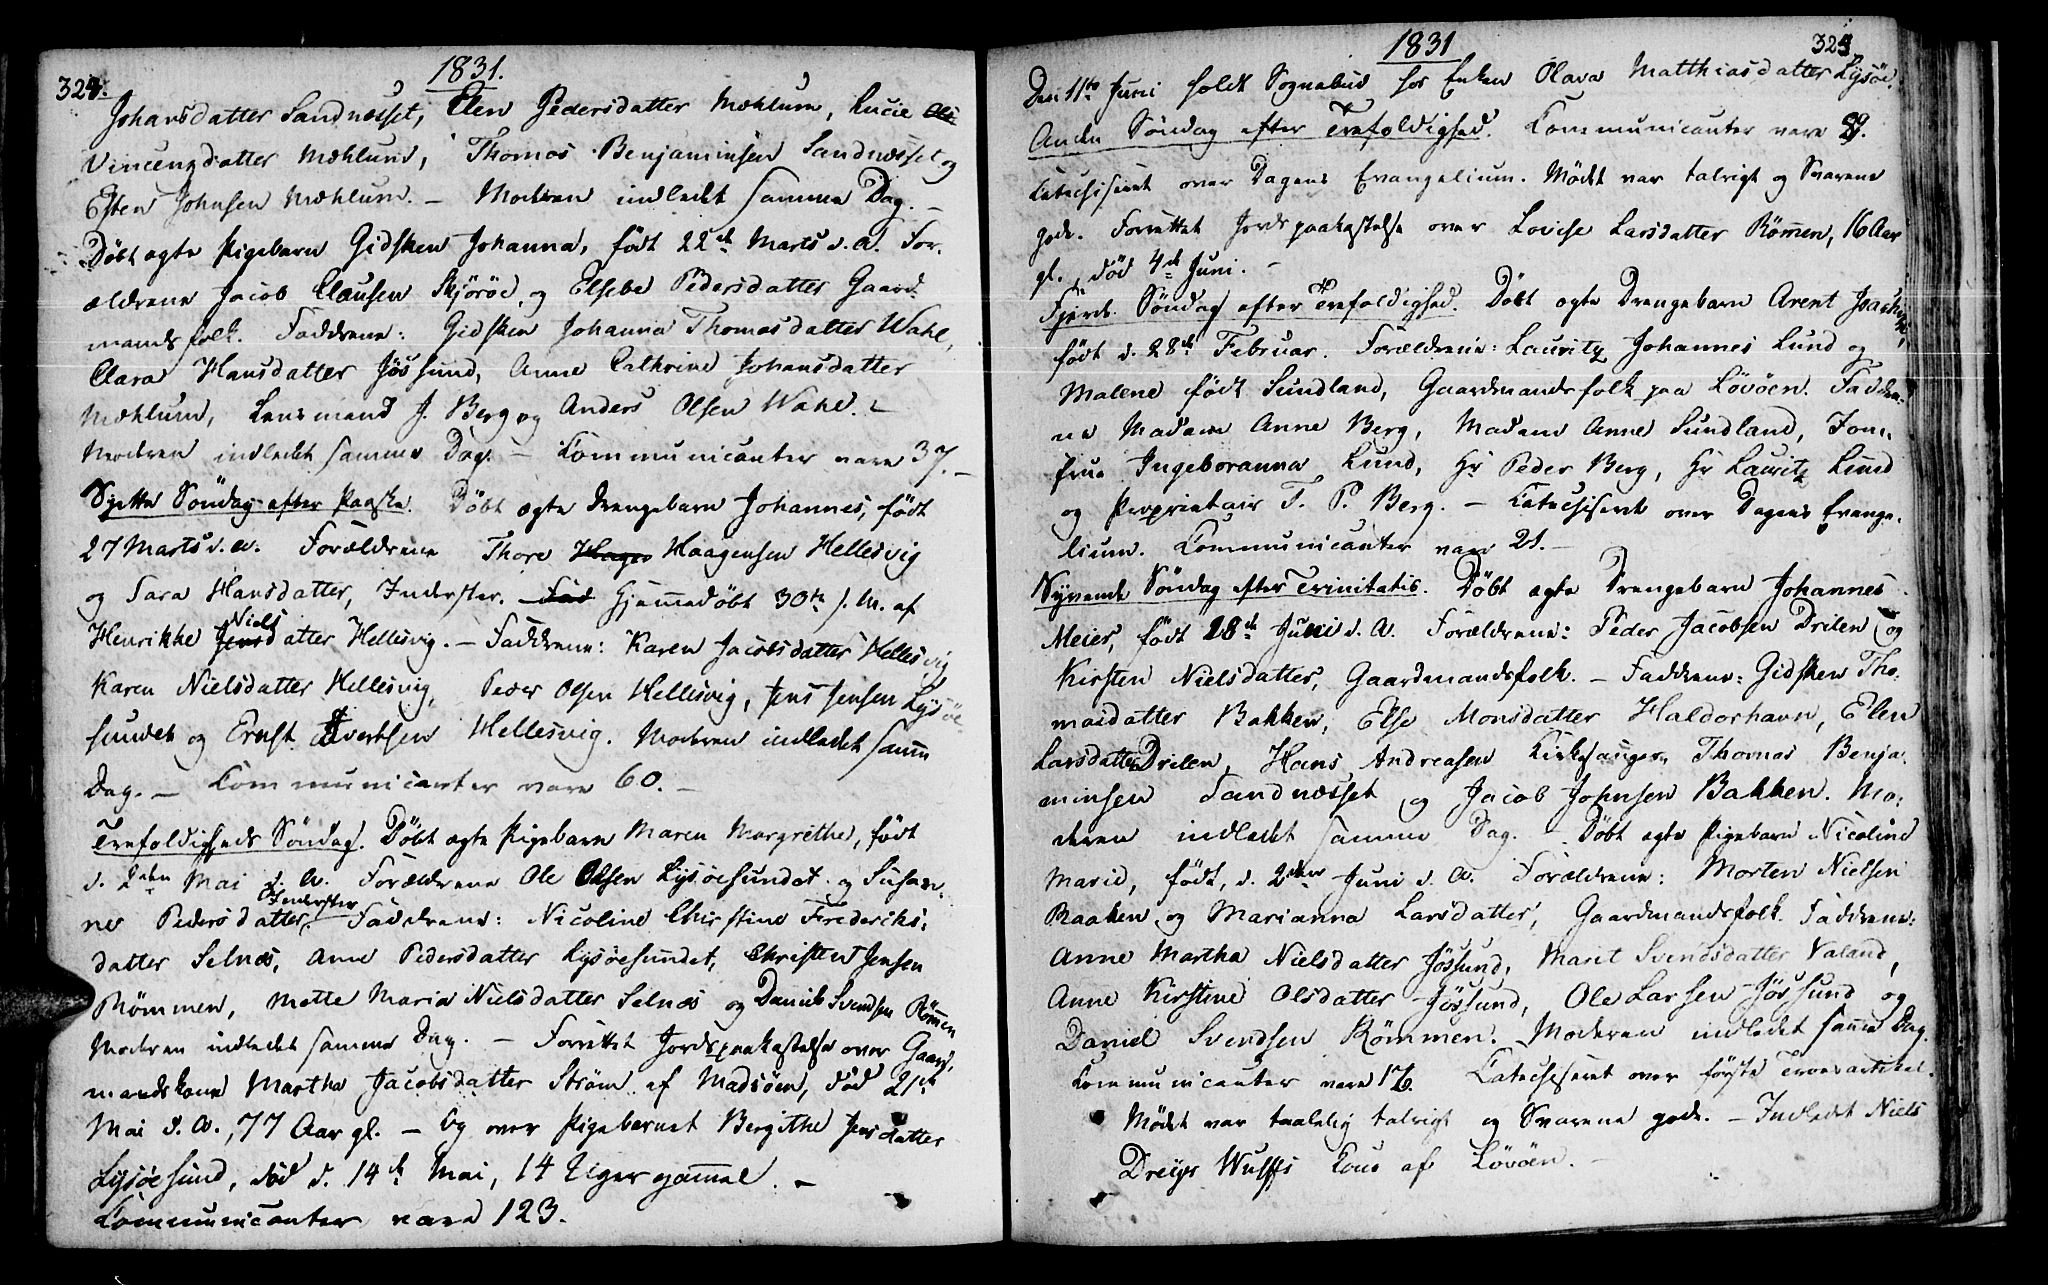 324.
1831.
Johansdatter Sandnæsset, Elen Pedersdatter Mæhlum, Lucie Ole
Vincenzdatter Mæhlum, Thomas Benjaminsen Sandnæsset og
Esten Johnsen Mæhlum. – Moderen indledet samme Dag. –
Døbt ægte Pigebarn Gidsken Johanna, født 22de Marts d. A. For-
ældrene Jacob Clausen Skjørøe, og Elsebe Pedersdatter Gaard-
mandsfolk. Faddrene: Gidsken Johanna Thomasdatter Wahl,
Clara Hansdatter Jøssund, Anne Cathrine Johansdatter
Mæhlum, Lensmand J. Berg og Anders Olsen Wahl. –
Moderen indledet samme Dag. – Communicanter vare 37. –
Sjette Søndag efter Paaske. Døbt ægte Drengebarn Johannes, født
27 Marts d. A. Forældrene Thore Hagen Haagensen Hellesvig
og Sara Hansdatter, Inderster. Fad Hjemmedøbt 30te s. M. af
Niels
Henrikke Jensdatter Hellesvig. – Faddrene: Karen Jacobsdatter Hellesvig
Karen Nielsdatter Hellesvig, Peder Olsen Hellesvig, Jens Jensen Lysøe
sundet og Ernst Evertsen Hellesvig. Moderen indledet samme
Dag. – Communicanter vare 60. –
Trefoldigheds Søndag. Døbt ægte Pigebarn Maren Margrethe, født
d. 2den Mai d. A. Forældrene Ole Olsen Lysøesundet og Susan-
Inderster
ne Pedersdatter. Faddrene: Nicoline Christine Frederiks-
datter Selnæs, Ane Pedersdatter Lysøesundet, Christen Jensen
Rømmen, Mette Maria Nielsdatter Selnæs og Daniel Svendsen Rømmen
Moderen indledet samme Dag. – Forrettet Jordspaakastelse over Gaard-
mandskone Martha Jacobsdatter Strøm af Madsøen, død 21de
Mai d. A., 77 Aar gl. – Og over Pigebarnet Bergithe Jensdatter
Lysøesund, død d. 14de Mai, 14 Uger gammel. –
Communicanter vare 123.
1831
325
Den 11te Juni holdt Sognebud hos Enken Olava Matthiasdatter Lysøe.
Anden Søndag efter Trefoldighed. Communicanter vare 89.
Catechiseret over Dagens Evangelium. Mødet var talrigt og Svarene
gode. Forrettet Jordspaakastelse over Lovise Larsdatter Rømmen, 16 Aar
gl., død 4de Juni. –
Fjerde Søndag efter Trefoldighed. Døbt ægte Drengebarn Arent Joachim,
født d. 28de Februar. Forældrene: Lauritz Johannes Lund og
Malene født Sundland, Gaardmandsfolk paa Løvøen. Faddre-
ne Madam Anne Berg, Madam Anne Sundland, Jom-
frue Ingeboranna Lund, Hr Peder Berg, Hr Lauritz Lund
og Proprietair T. P. Berg. – Catechiseret over Dagens Evange-
lium. Communicanter vare 21. –
Syvende Søndag efter Trinitatis. Døbt ægte Drengebarn Johannes
Meier, født 18de Juni d. A. Forældrene: Peder Jacobsen Drilen og
Kirsten Nielsdatter, Gaardmandsfolk. – Faddrene: Gidsken Tho-
masdatter Bakken, Else Monsdatter Haldorhavn, Elen
Larsdatter Drilen, Hans Andreasen Kirkesanger, Thomas Benja-
minsen Sandnæsset og Jacob Johnsen Bakken. Mo-
deren indledet samme Dag. – Døbt ægte Pigebarn Nicoline
Marie, født, d. 2den Juni d. A. Forældrene: Morten Nielsen
Raaken og Marianna Larsdatter, Gaardmandsfolk. Faddrene:
Anne Martha Nielsdatter Jøssund, Marit Svendsdatter Valand,
Anne Kirstine Olsdatter Jøssund, Ole Larsen Jøssund og
Daniel Svendsen Rømmen. Moderen indledet samme Dag.
Communicanter vare 17. Catechiseret over første Troesartikel.
Mødet var taalelig talrigt og Svarene gode. – Indledet Niels
Dreyer Wulffs Kone af Løvøen. –